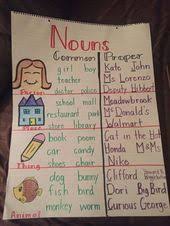 Nouns
Common Proper
girl boy Kate John
teacher Ms. Lorenzo
doctor police Deputy Hibbert
Person
school mall Meadowbrook
restaurant park McDonald's
store library Walmart
Place
book poem Cat in the Hat
car candy Honda M&Ms
shoes chair Nike
Thing
dog bunny Clifford
fish bird Dori Big Bird
monkey worm Curious George
Animal